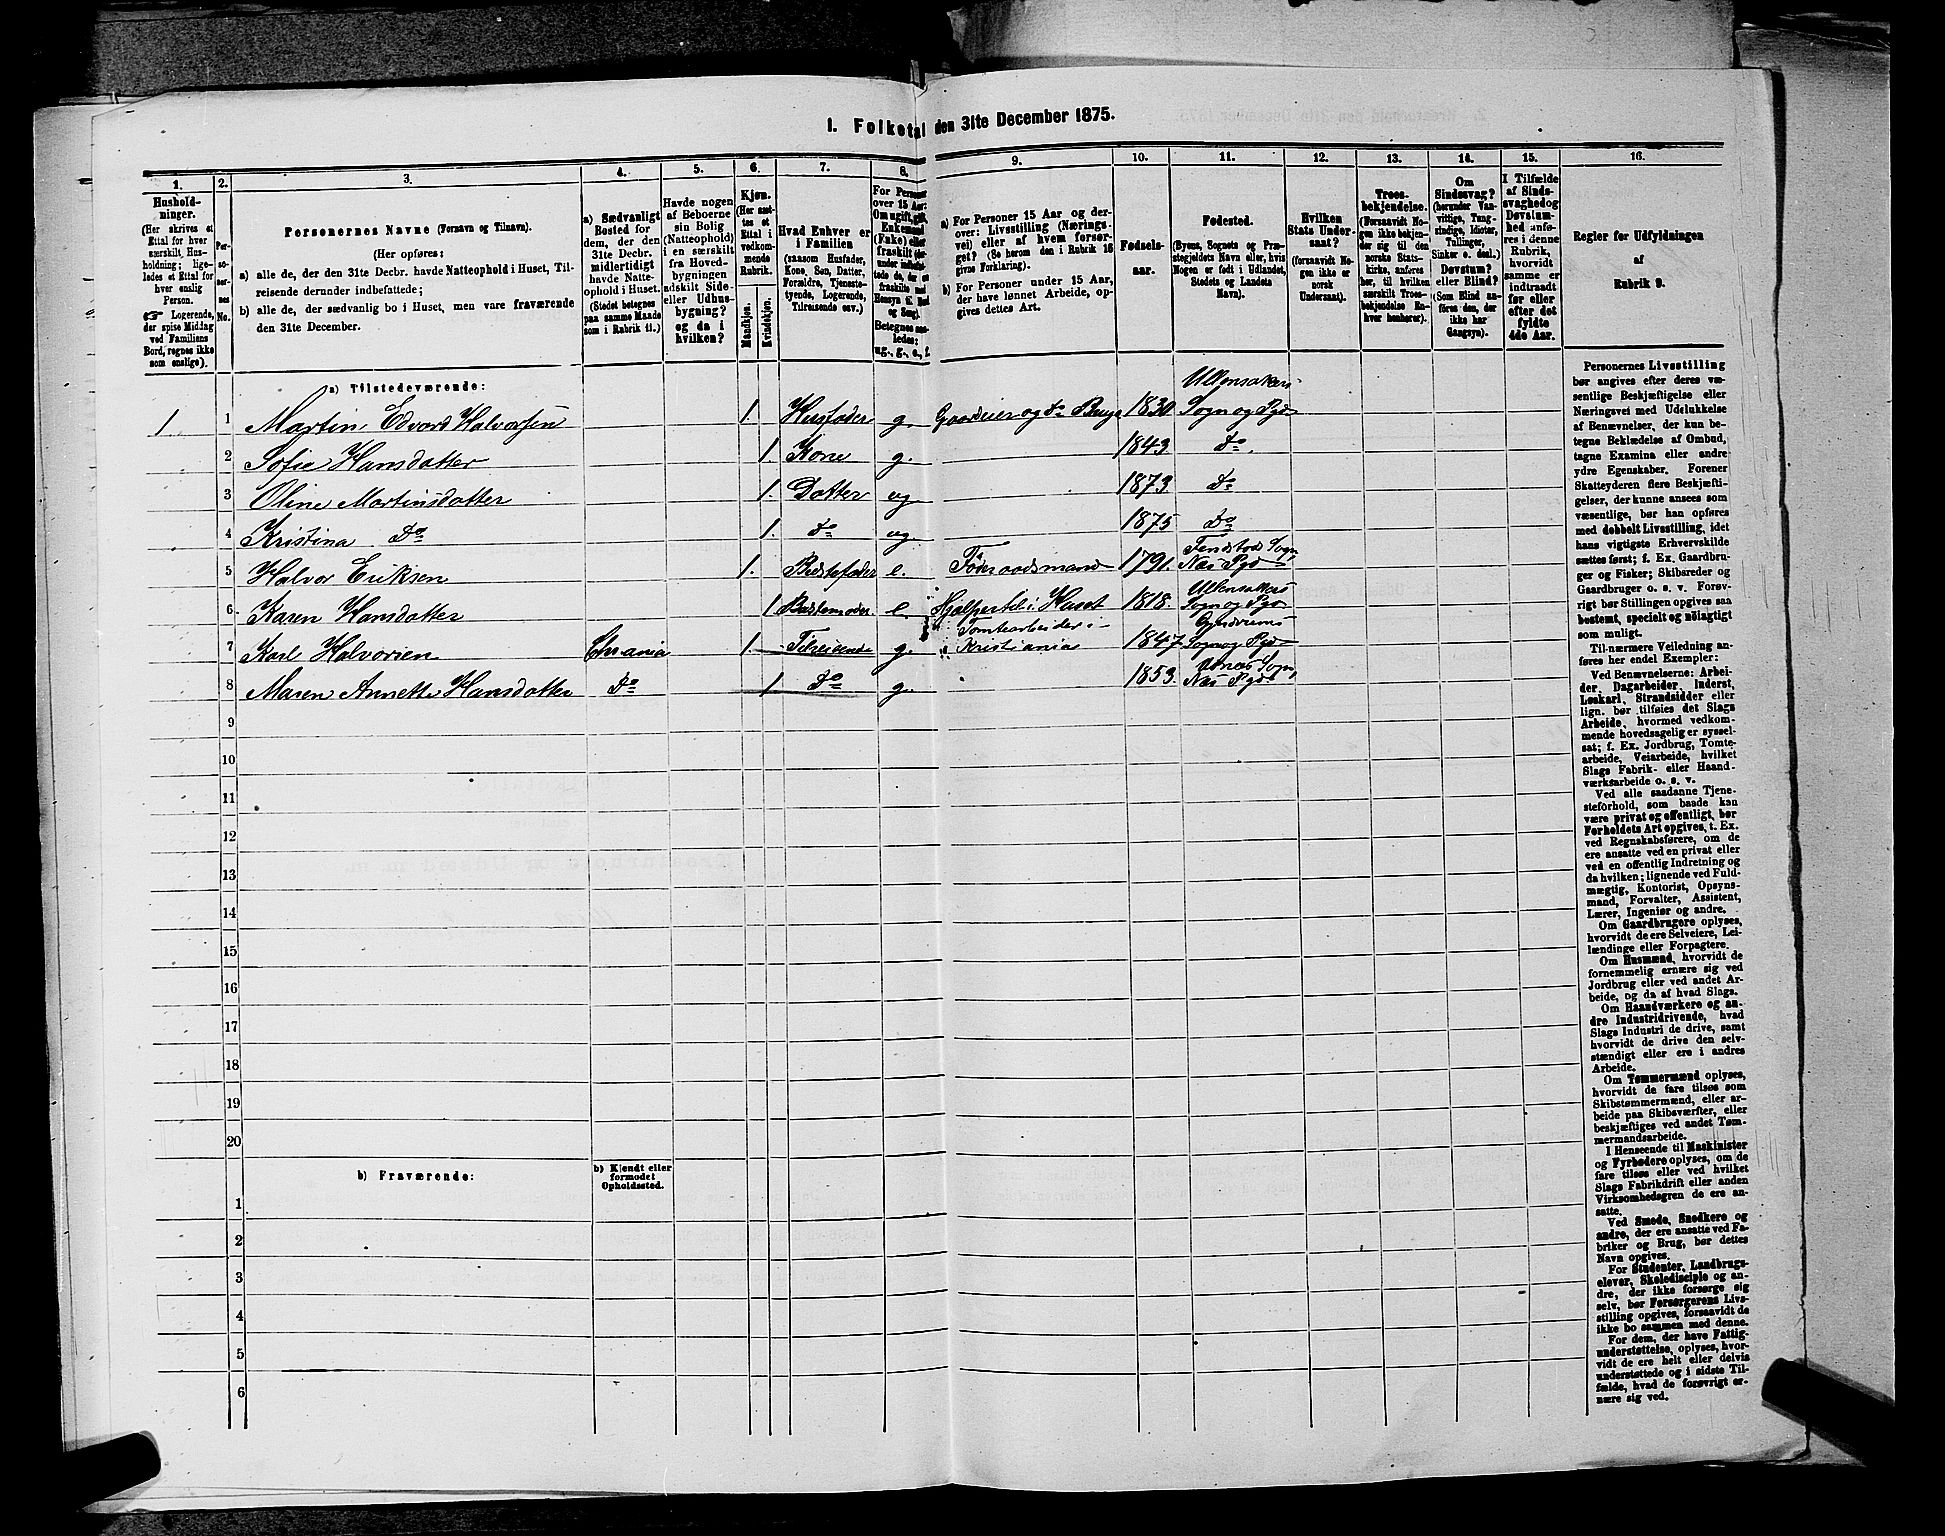 1. Folketal den 31te December 1875.
1. 2. 3. 4. 5. 6. 7. 8. 9. 10. 11. 12. 13. 14. 15. 16.
Hushold-
ninger.
(Her skrives et
Ettal for hver
særskilt Hus-
holdning; lige-
ledes et Ettal for
hver enslig
Person.
☞ Logerende,
der spise Middag
ved Familiens
Bord, regnes ikke
som enslige).
Per-
so-
ner-
nes
No.
Personernes Navne (Fornavn og Tilnavn).
(Her opføres:
a) alle de, der den 31te Decbr. havde Natteophold i Huset, Til-
reisende derunder indbefattede;
b) alle de, der sædvanlig bo i Huset, men vare fraværende
den 31te December.
a) Sædvanligt
Bosted for
dem, der den
31te Decbr.
midlertidigt
havde Natte-
ophold i Huset.
(Stedet betegnes
paa samme Maade
som i Rubrik 11.)
Havde nogen
af Beboerne
sin Bolig
(Natteophold)
i en særskilt
fra Hoved-
bygningen
adskilt Side-
eller Udhus-
bygning?
og da i
hvilken?
Kjøn.
(Her sæt-
tes et
Ettal i
vedkom-
mende
Rubrik.
Mandkjøn.
Kvindekjøn.
Hvad Enhver er
i Familien
(saasom Husfader,
Kone, Søn, Datter,
Forældre, Tjeneste-
tyende, Logerende,
Tilreisende osv.)
For Personer
over 15 Aar:
Om ugift, gift,
Enkemand
(Enke) eller
fraskilt
Betegnes saa-
ledes:
ug., g., e., f.
a) For Personer 15 Aar og der-
over: Livsstilling (Nærings-
vei) eller af hvem forsør-
get? (Se herom den i Rubrik 16
givne Forklaring).
b) For Personer under 15 Aar,
der have lønnet Arbeide, op-
gives dettes Art.
Fødsels-
aar.
Fødested.
(Byens, Sognets og Præ-
stegjeldets Navn eller, hvis
Nogen er født i Udlandet,
Stedets og Landets
Navn).
Hvilken
Stats Under-
saat?
(forsaavidt No-
gen ikke er
norsk
Undersaat).
Troes-
bekjendelse.
(Forsaavidt No-
gen ikke bekjen-
der sig til den
norske Stats-
kirke, anføres
her, til hvilken
særskilt Troes-
bekjendelse En-
hver henhører).
Om
Sindssvag?
(herunder Van-
vittige, Tung-
sindige, Idioter,
Tullinger,
Sinker o. desl.)
Døvstum?
eller Blind?
(Som Blind an-
føres den, der
ikke har
Gangsyn).
I Tilfælde
af Sinds-
svaghed og
Døvstum-
hed anfø-
res i denne
Rubrik,
hvorvidt
samme er
indtraadt
før eller
efter det
fyldte
4de Aar.
Regler for Udfyldningen
af
Rubrik 9.
a) Tilstedeværende:
1 1 Martin Edvard Halvorsen 1. Husfader g. Gaardeier og do Brug 1830. Ullensakers Sogn og Pgd
2 Sofie Hansdatter 1. Kone g. 1843. do.
3 Oline Martinsdatter 1. Datter ug 1873. do
4 Kristina do 1. do ug. 1875 do
5 Halvor Eriksen 1. Bedstefader e. Føderaadsmand 1791. Sogn Næs Pgd
6 Karen Hansdatter 1 Bestemoder e Hjelper til i Huset 1818. Ullensakers Sogn og Pgd
7 Karl Halvorsen Chrania 1. Tilreisende g. Tomtearbeider i Kristiania 1847. Sogn og Pgd
8 Maren Annette Hansdatter do 1 do g. 1853. Sogn, Næs Pgd
9
10
11
12
13
14
15
16
17
18
19
20
b) Fraværende:
b) Kjendt eller
formodet
Opholdssted.
1
2
3
4
5
6
Personernes Livsstilling
bør angives efter deres væ-
sentlige Beskjæftigelse eller
Næringsvei med Udelukkelse
af Benævnelser, der kun be-
tegne Beklædelse af Ombud,
tagne Examina eller andre
ydre Egenskaber. Forener
Skatteyderen flere Beskjæfti-
gelser, der kunne ansees som
væsentlige, bør han opføres
med dobbelt Livsstilling, idet
hans vigtigste Erhvervskilde
sættes først; f. Ex. Gaardbru-
ger og Fisker; Skibsreder og
Gaardbruger o. s. v. Forøv-
rigt bør Stillingen opgives saa
bestemt, specielt og nøiagtigt
som muligt.
Til nærmere Veiledning an-
føres her endel Exempler:
Ved Benævnelserne: Arbei-
der, Dagarbeider, Inderst,
Løskarl, Strandsidder eller
lign. bør tilføies det Slags
Arbeide, hvormed vedkom-
mende hovedsagelig er syssel-
sat; f. Ex. Jordbrug, Tomte-
arbeide, Veiarbeide, hvilket
Slags Fabrik- eller Haand-
værksarbeide o. s. v.
Ved alle saadanne Tjene-
steforhold, som baade kan
være privat og offentligt, bør
Forholdets Art opgives, t. Ex.
ved Regnskabsførere, om de
ere ansatte ved en privat eller
ved en offentlig Indretning og
da hvilken; lignende ved Fuld-
mægtig, Kontorist, Opsyns-
mand, Forvalter, Assistent,
Lærer, Ingeniør og andre.
Om Gaardbrugere oplyses,
hvorvidt de ere Selveiere, Lei-
lændinge eller Forpagtere.
Om Husmænd, hvorvidt de
fornemmelig ernære sig ved
Jordbrug eller ved andet Ar-
beide, og da af hvad Slags.
Om Haandværkere og an-
dre Industridrivende, hvad
Slags Industri de drive, samt
hvorvidt de drive den selv-
stændigt eller ere i andres
Arbeide.
Om Tømmermænd oplyses,
hvorvidt de fare tilsøs som
Skibstømmermænd, eller ar-
beide paa Skibsværfter, eller
beskjæftiges ved andet Tøm-
mermandsarbeide.
I Henseende til Maskinister
og Fyrbødere oplyses, om de
fare tilsøs eller ved hvilket
Slags Fabrikdrift eller anden
Virksomhedsgren de ere an-
satte.
Ved Smede, Snedkere og
andre, der ere ansatte ved Fa-
briker og Brug, bør dettes
Navn opgives.
For Studenter, Landbrugs-
elever, Skoledisciple og an-
dre, der ikke forsørge sig
selv, bør Forsørgerens Livs-
stilling opgives, forsaavidt de
ikke bo sammen med denne.
For dem, der have Fattig-
understøttelse, oplyses, hvor-
vidt de ere helt eller delvis
understøttede og i sidste Til-
fælde, hvad de forøvrigt er-
nære sig ved.